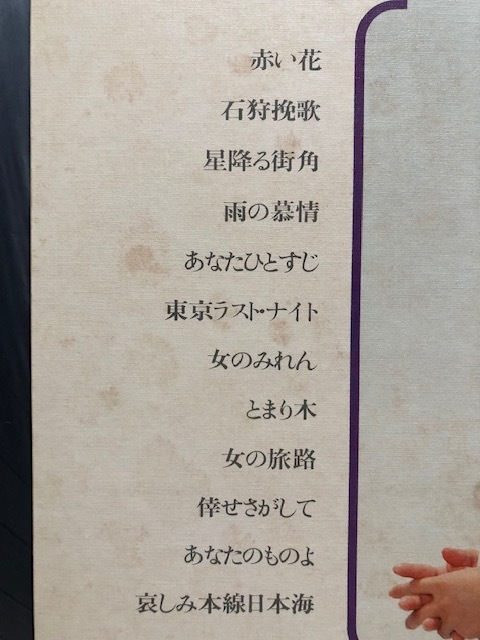 赤い花
石狩挽歌
星降る街角
雨の慕情
あなたひとすじ
東京ラスト・ナイト
女のみれん
とまり木
女の旅路
倖せさがして
あなたのものよ
哀しみ本線日本海